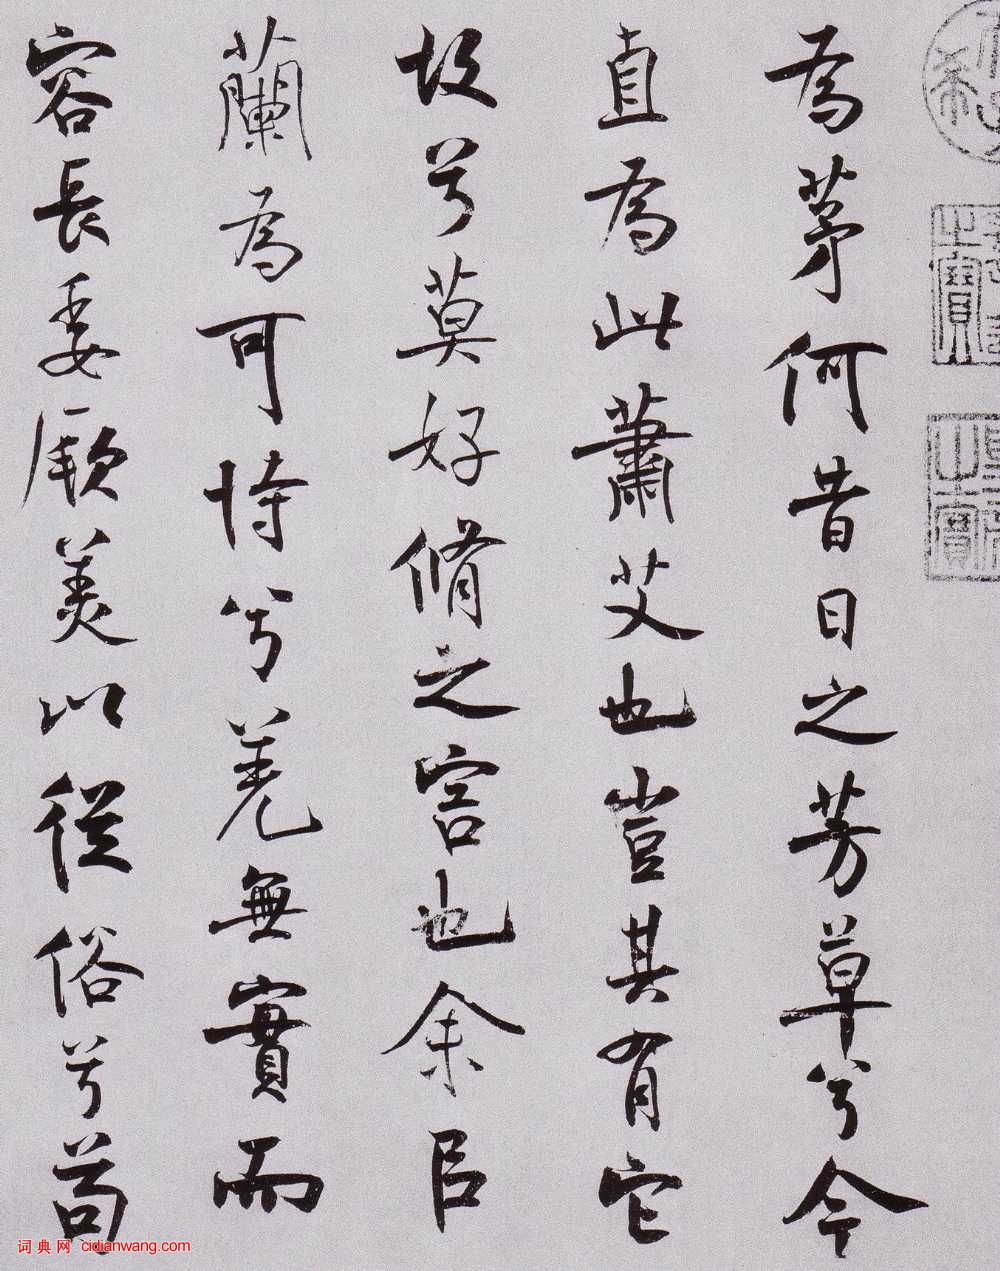 為茅何昔日之芳草兮今
直為此蕭艾也豈其有它
故兮莫好脩之害也余㠯
蘭為可恃兮羌無實而
容長委厥美以從俗兮苟
词典网 cidianwang.com